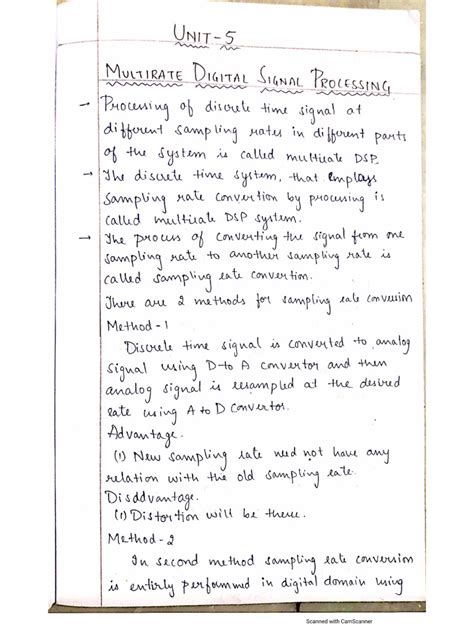 UNIT-5
MULTIRATE DIGITAL SIGNAL PROCESSING
→ Processing of discrete time signal at
different sampling rates in different parts
of the system is called multirate DSP.
→ The discrete time system, that employs
sampling rate convertion by processing is
called multirate DSP system.
→ The process of converting the signal from one
sampling rate to another sampling rate is
called sampling rate convertion.
There are 2 methods for sampling rate conversion
Method-1
Discrete time signal is converted to analog
signal using D-to A convertor and then
analog signal is resampled at the desired
rate using A to D Convertor.
Advantage.
(1) New sampling rate need not have any
relation with the old sampling rate.
Disddvantage.
(1) Distortion will be there.
Method-2
In second method sampling rate conversion
is entirly performmed in digital domain using
Scanned with CamScanner